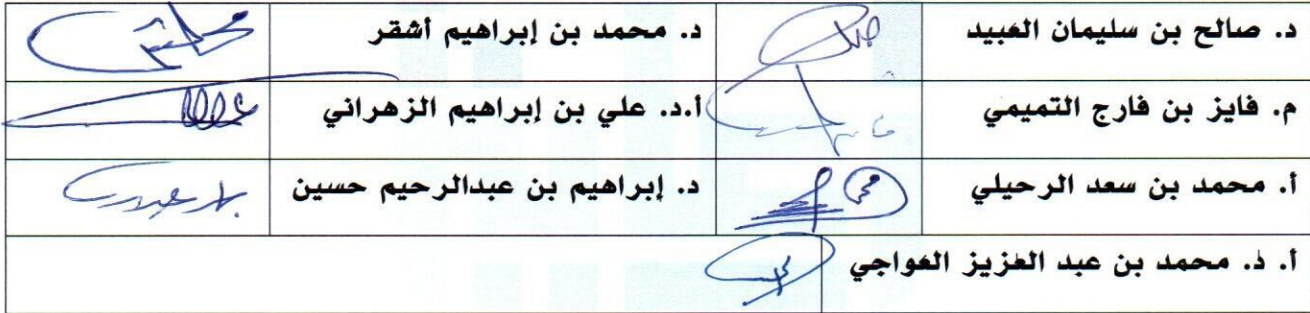 د. صالح بن سليمان العبيد د. محمد بن إبراهيم أشقر
م. فايز بن فارج التميمي أ.د. علي بن إبراهيم الزهراني
أ. محمد بن سعد الرحيلي د. إبراهيم بن عبدالرحيم حسين
أ. د. محمد بن عبد العزيز العواجي